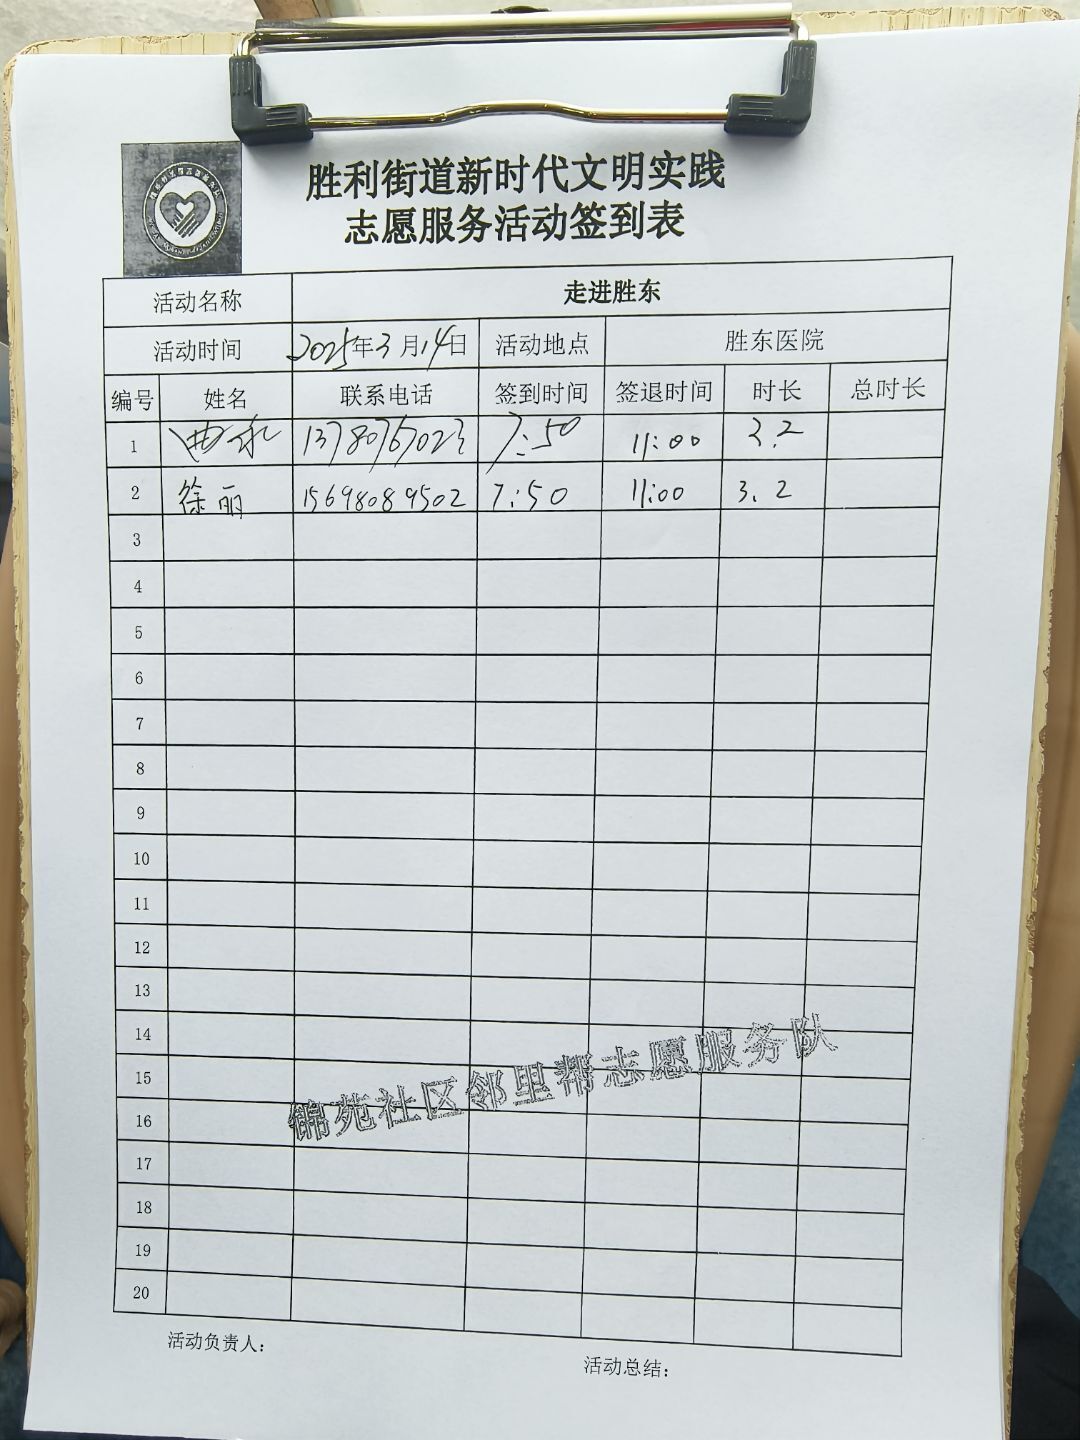 胜利街道新时代文明实践
志愿服务活动签到表
活动名称 走进胜东
活动时间 2025年3月14日 活动地点 胜东医院
编号 姓名 联系电话 签到时间 签退时间 时长 总时长
1 曲 13780767023 7:50 11:00 3.2
2 徐丽 15698089502 7:50 11:00 3.2
3
4
5
6
7
8
9
10
11
12
13
14
15
16
17
18
19
20
锦苑社区邻里帮志愿服务队
活动负责人:
活动总结: